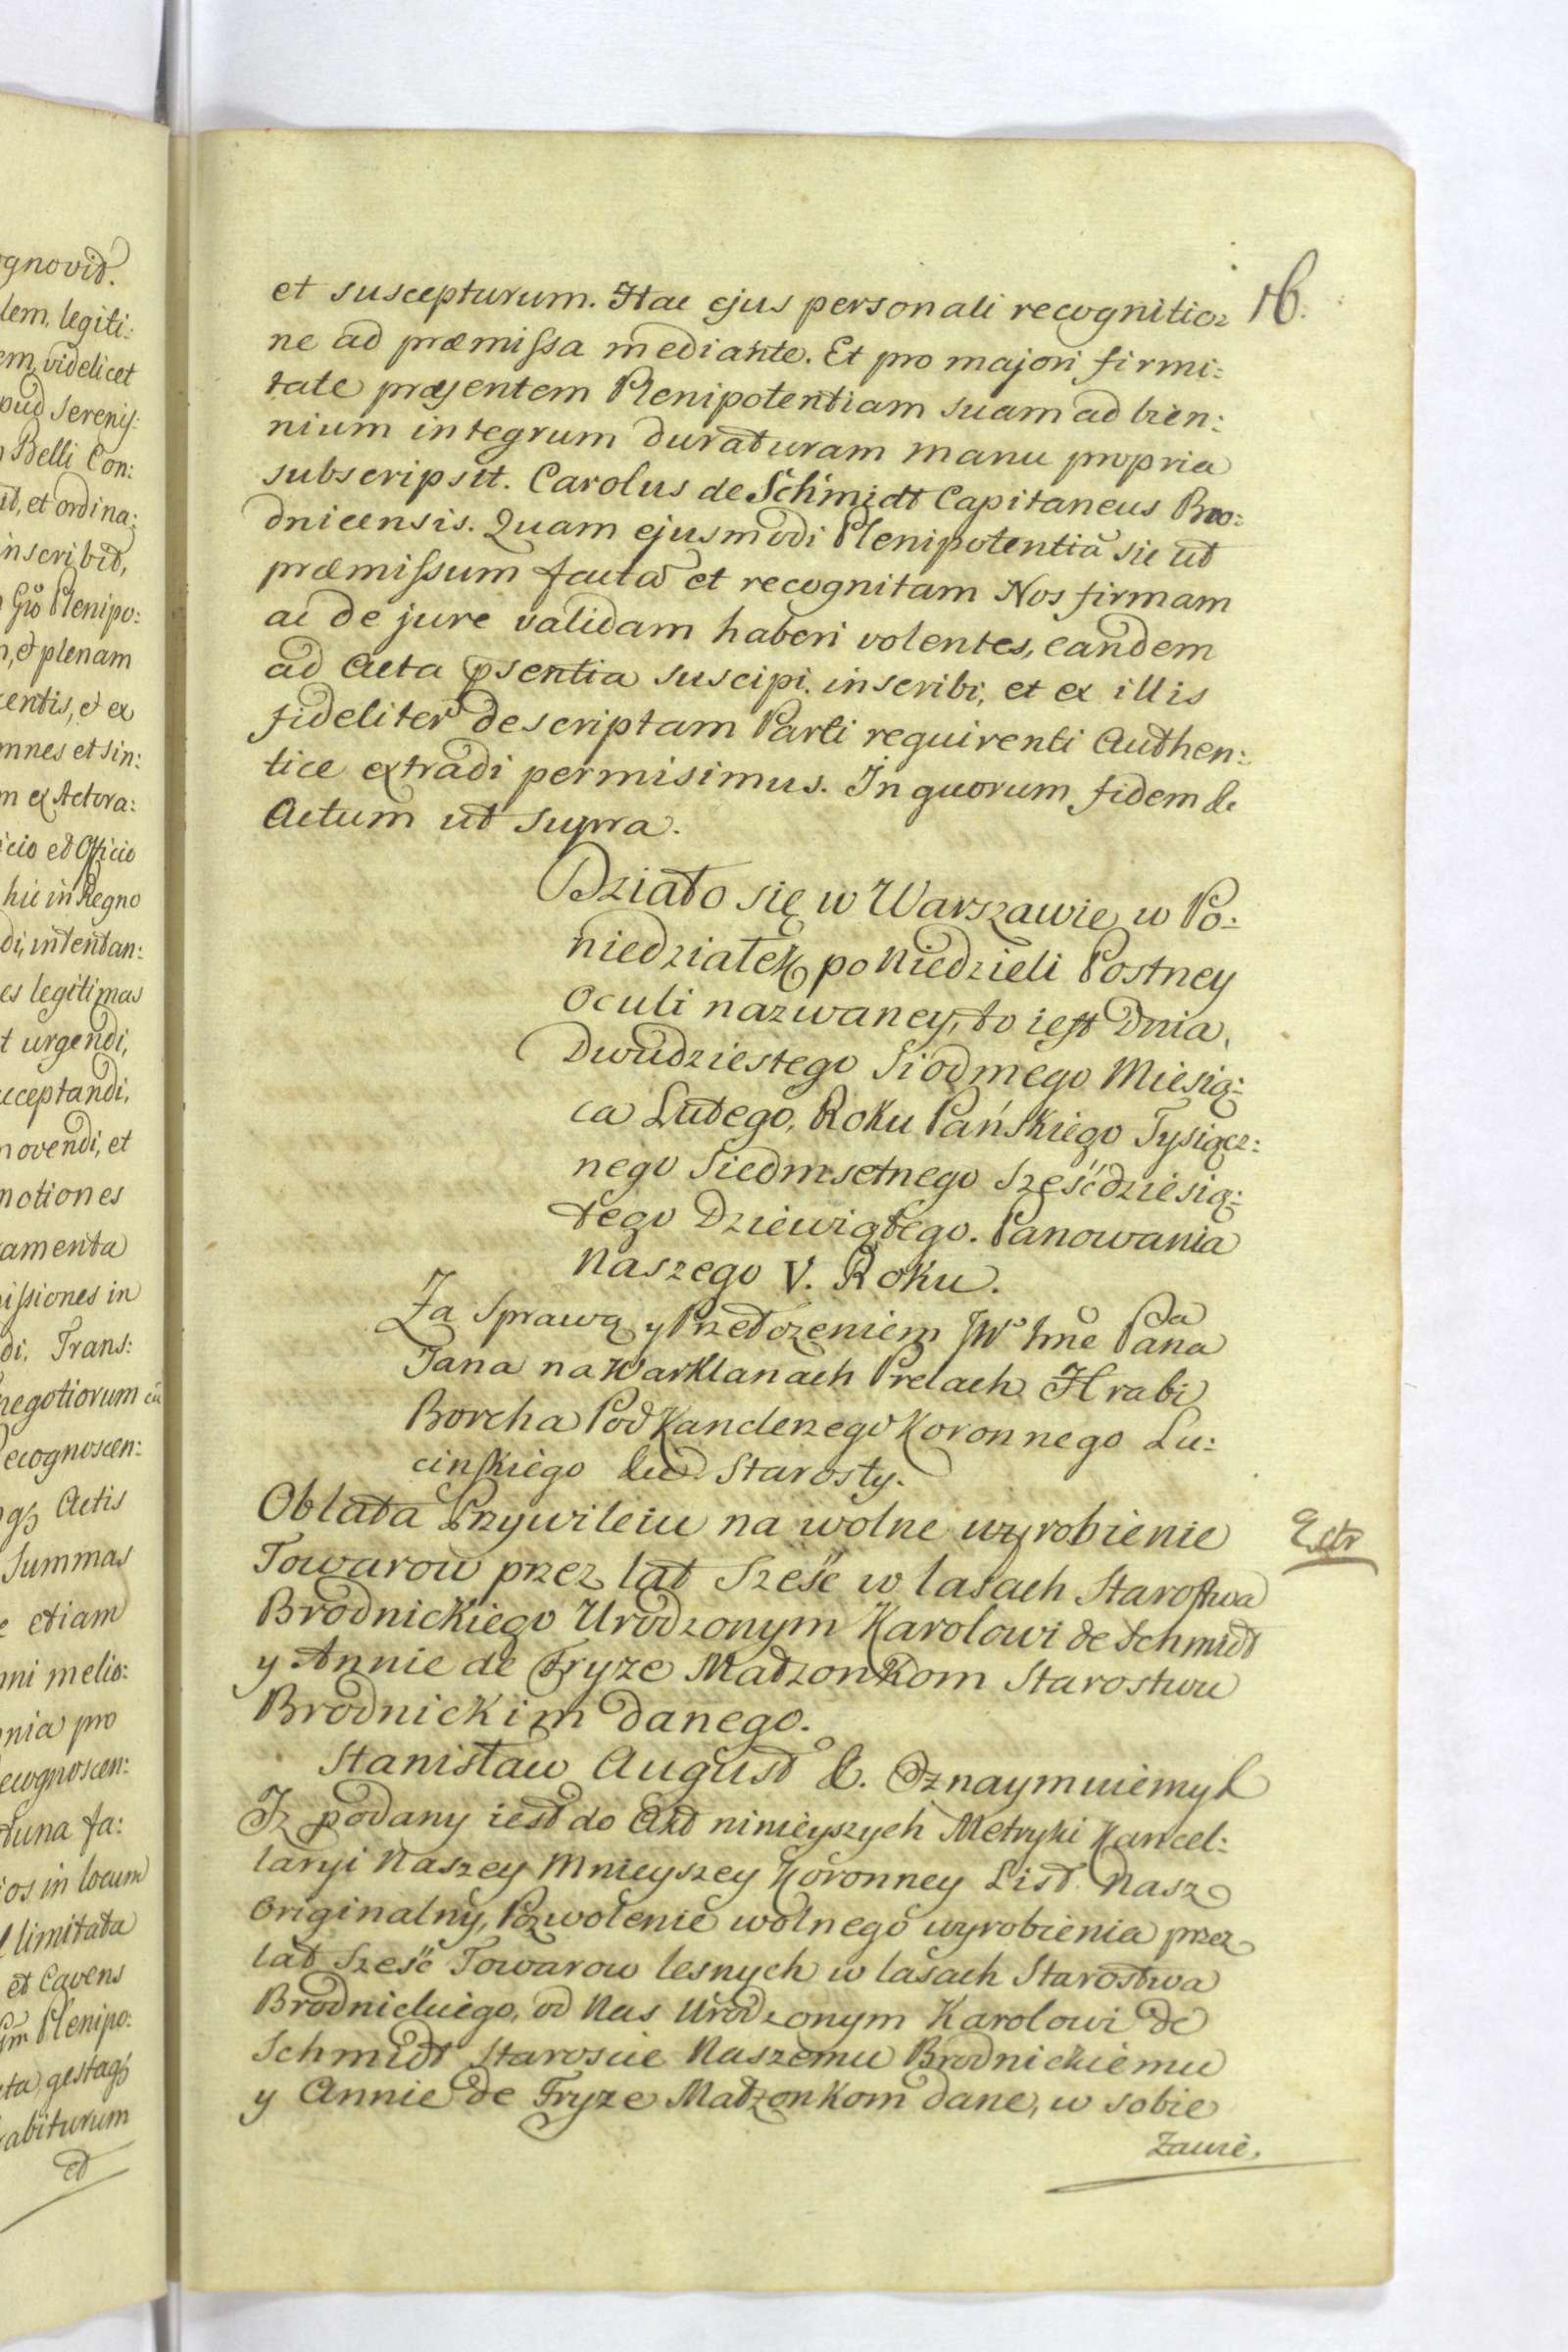 ognovit.
lem, legiti:
em, videlicet
pud Sereniss:
Belli Con:
it, et ordina:
inscribit,
Gñõ Plenipo:
m, et plenam
centis, et ex
mnes et sin:
m ex Actora:
icio et Officio
hic in Regno
di, intentan:
es legitimas
t urgendi,
cceptandi,
movendi, et
motiones
amenta
issiones in
di, Trans:
negotiorum cũ
Recognoscen:
Actis
Summas
etiam
mni melio:
mnia pro
ecognoscen:
tuna fa:
ios in locum
limitata
et Cavens
Plenipo:
ta, gestaq3
abiturum
et
16.
et suscepturum. Hac ejus personali recognitio:
ne ad præmissa mediante. Et pro majori firmi:
tate præsentem Plenipotentiam suam ad bien:
nium integrum duraturam manu propria
subscripsit. Carolus de Schmidt Capitaneus Bro:
dnicensis. Quam ejusmodi Plenipotentiã sic ut
præmissum factã et recognitam Nos firmam
ac de jure validam haberi volentes, eandem
ad Acta psentia suscipi, inscribi, et ex illis
fideliter descriptam Parti requirenti Authen:
tice extradi permisimus. In quorum fidem &c
Actum ut supra.
Działo się w Warszawie w Po:
niedziałek po Niedzieli Postney
Oculi nazwaney, to iest Dnia
Dwudziestego Siodmego Miesią:
ca Lutego, Roku Pańskiego Tysiącz:
nego Siedmsetnego Sześćdziesią:
tego Dziewiątego. Panowania
Naszego V. Roku.
Za Sprawą y Przełożeniem JWo Jmē Pana
Jana na Warklanach Prelach Hrabi
Borcha Podkanclerzego Koronnego Lu:
cinskiego &c Starosty.
Oblata Przywileiu na wolne wyrobienie
Towarow przez lat Sześć w lasach Starostwa
Brodnickiego Urodzonym Karolowi de Schmidt
y Annie de Fryze Małzonkom Starostwu
Brodnickim danego.
Extr
Stanisław August &c. Oznaymuiemy &c
Iż podany iest do Akt ninieyszych Metryki Kancel:
laryi Naszey Mnieyszey Koronney List Nasz
Originalny, Pozwolenie wolnego wyrobienia przez
lat Sześć Towarow lesnych w lasach Starostwa
Brodnickiego, od Nas Urodzonym Karolowi de
Schmidt Staroscie Naszemu Brodnickiemu
y Annie de Fryze Małzonkom dane, w sobie
Zawie.